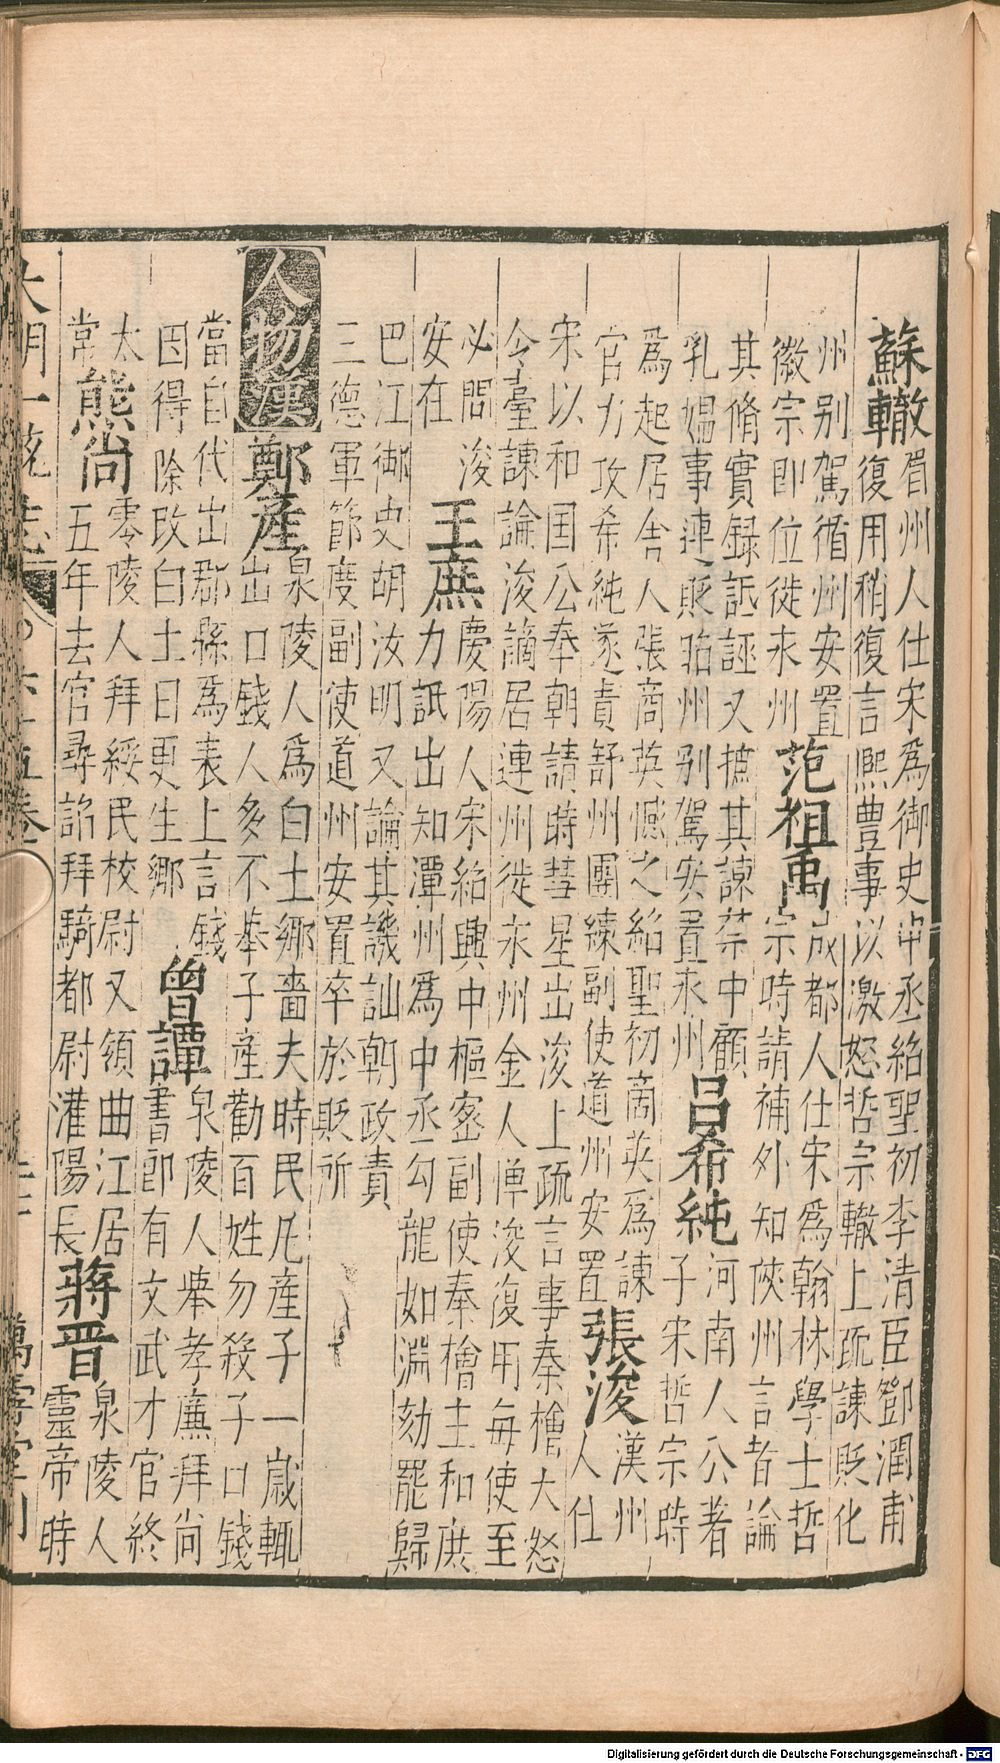 蘇轍
眉州人仕宋為御史中丞紹聖初李清臣鄧潤甫
復用稍復言熈豐事以激怒哲宗轍上疏諫貶化
州别駕循州安置
徽宗即位徙永州
范祖禹
成都人仕宋為翰林學士哲
宗時請補外知陜州言者論
其脩實録詆誣又摭其諫禁中顧
乳媪事連貶昭州别駕安置永州
呂希純
河南人公著
子宋哲宗時
為起居舍人張商英憾之紹聖初商英為諫
官力攻希純遂責舒州團練副使道州安置
張浚
漢州
人仕
宋以和国公奉朝請時彗星出浚上疏言事秦檜大怒
令臺諫論浚謫居連州徙永州金人憚浚復用每使至
必問浚
安在
王庶
慶陽人宋紹興中樞宻副使秦檜主和庶
力詆出知潭州為中丞勾龍如淵劾罷歸
巴江御史胡汝明又論其譏訕朝政責
三德軍節度副使道州安置卒於貶所
人物漢
鄭産
泉陵人為白土鄉嗇夫時民凡産子一歳輒
出口錢人多不舉子産勸百姓勿殺子口錢
當自代出郡縣為表上言錢
因得除改白土曰更生鄉
曾譚
泉陵人舉孝廉拜尚
書郎有文武才官終
太
常
熊尚
零陵人拜綏民校尉又領曲江居
五年去官尋詔拜騎都尉灌陽長
蔣晋
泉陵人
靈帝時
大明一統志
萬壽堂刊
Digitalisierung gefördert durch die Deutsche Forschungsgemeinschaft - DFG